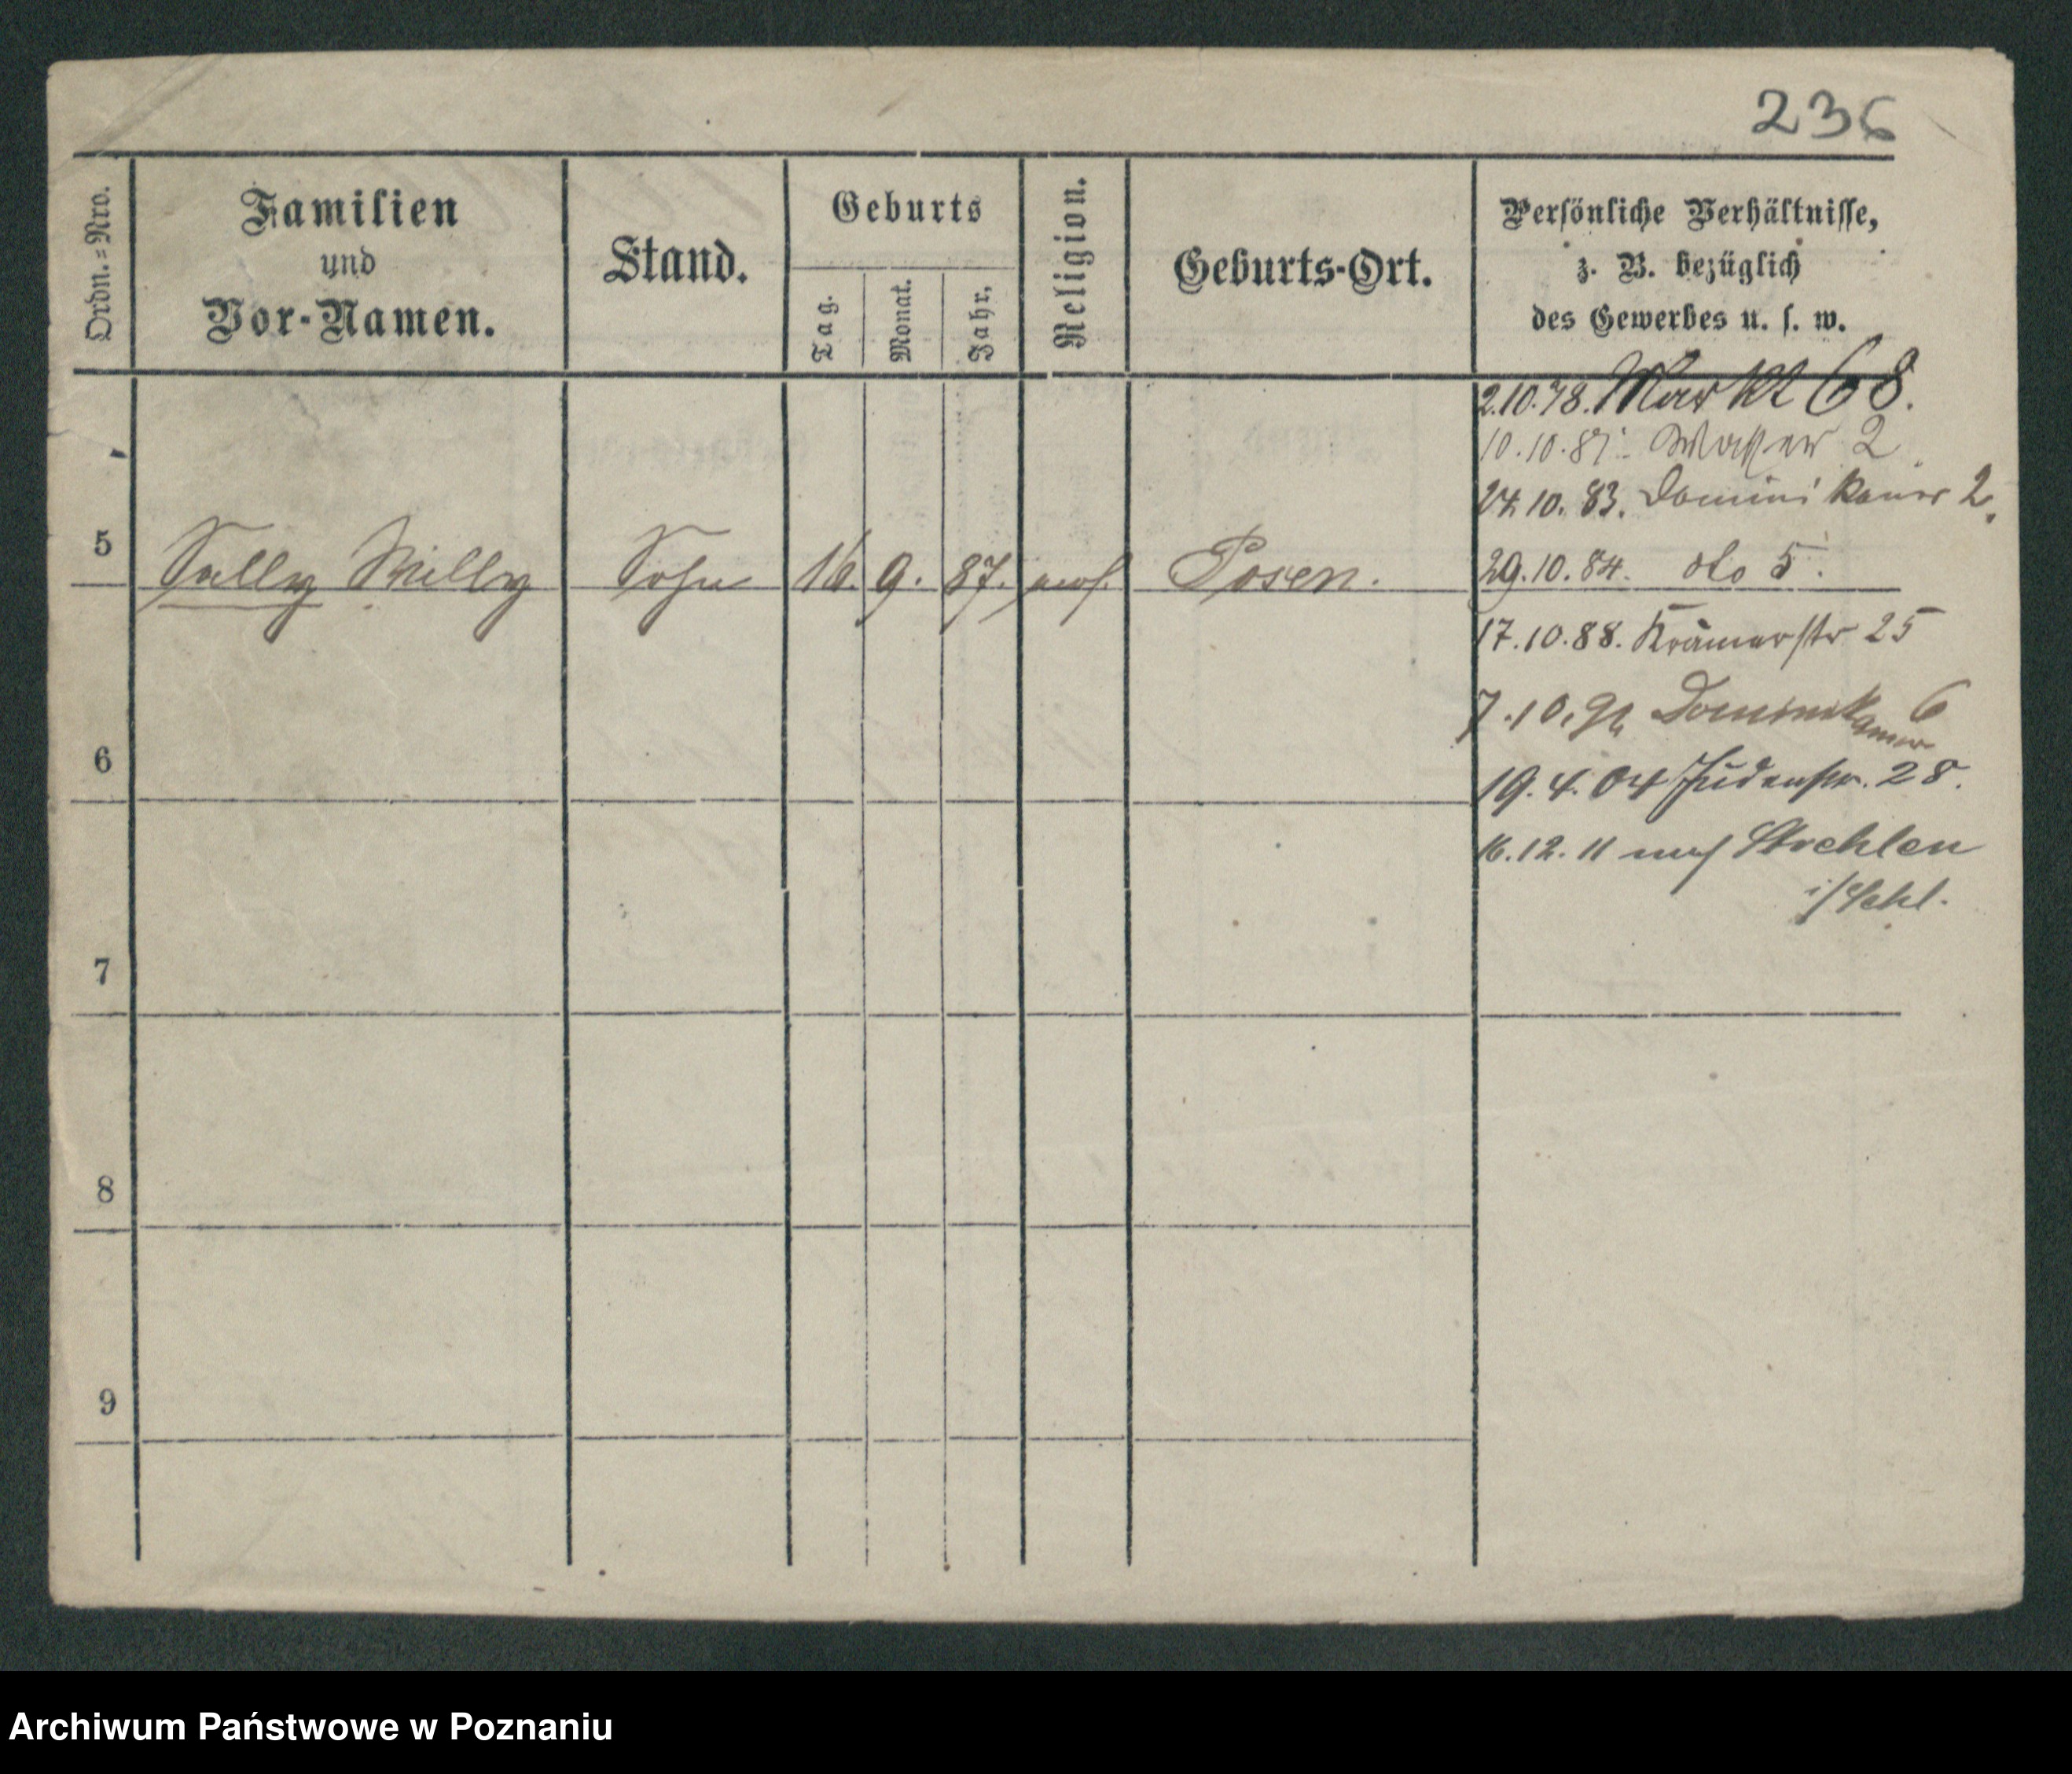 236
Ordn.=Nro.
Familien
und
Vor-Namen.
Stand.
Geburts
Tag.
Monat.
Jahr.
Religion.
Geburts-Ort.
Persönliche Verhältnisse,
z. B. bezüglich
des Gewerbes u. s. w.
2.10.78. Markt 68.
10.10.81. Wasser 2
24.10.83. Dominikaner 2.
5 Sally Willy Sohn 16. 9. 87. mos. Posen.
29.10.84. dto 5.
17.10.88. Krämerstr 25
7.10.91 Dominikaner 6
6
19.4.04 Judenstr. 28.
16.12.11 nach Strehlen
i/Schl.
7
8
9
Archiwum Państwowe w Poznaniu